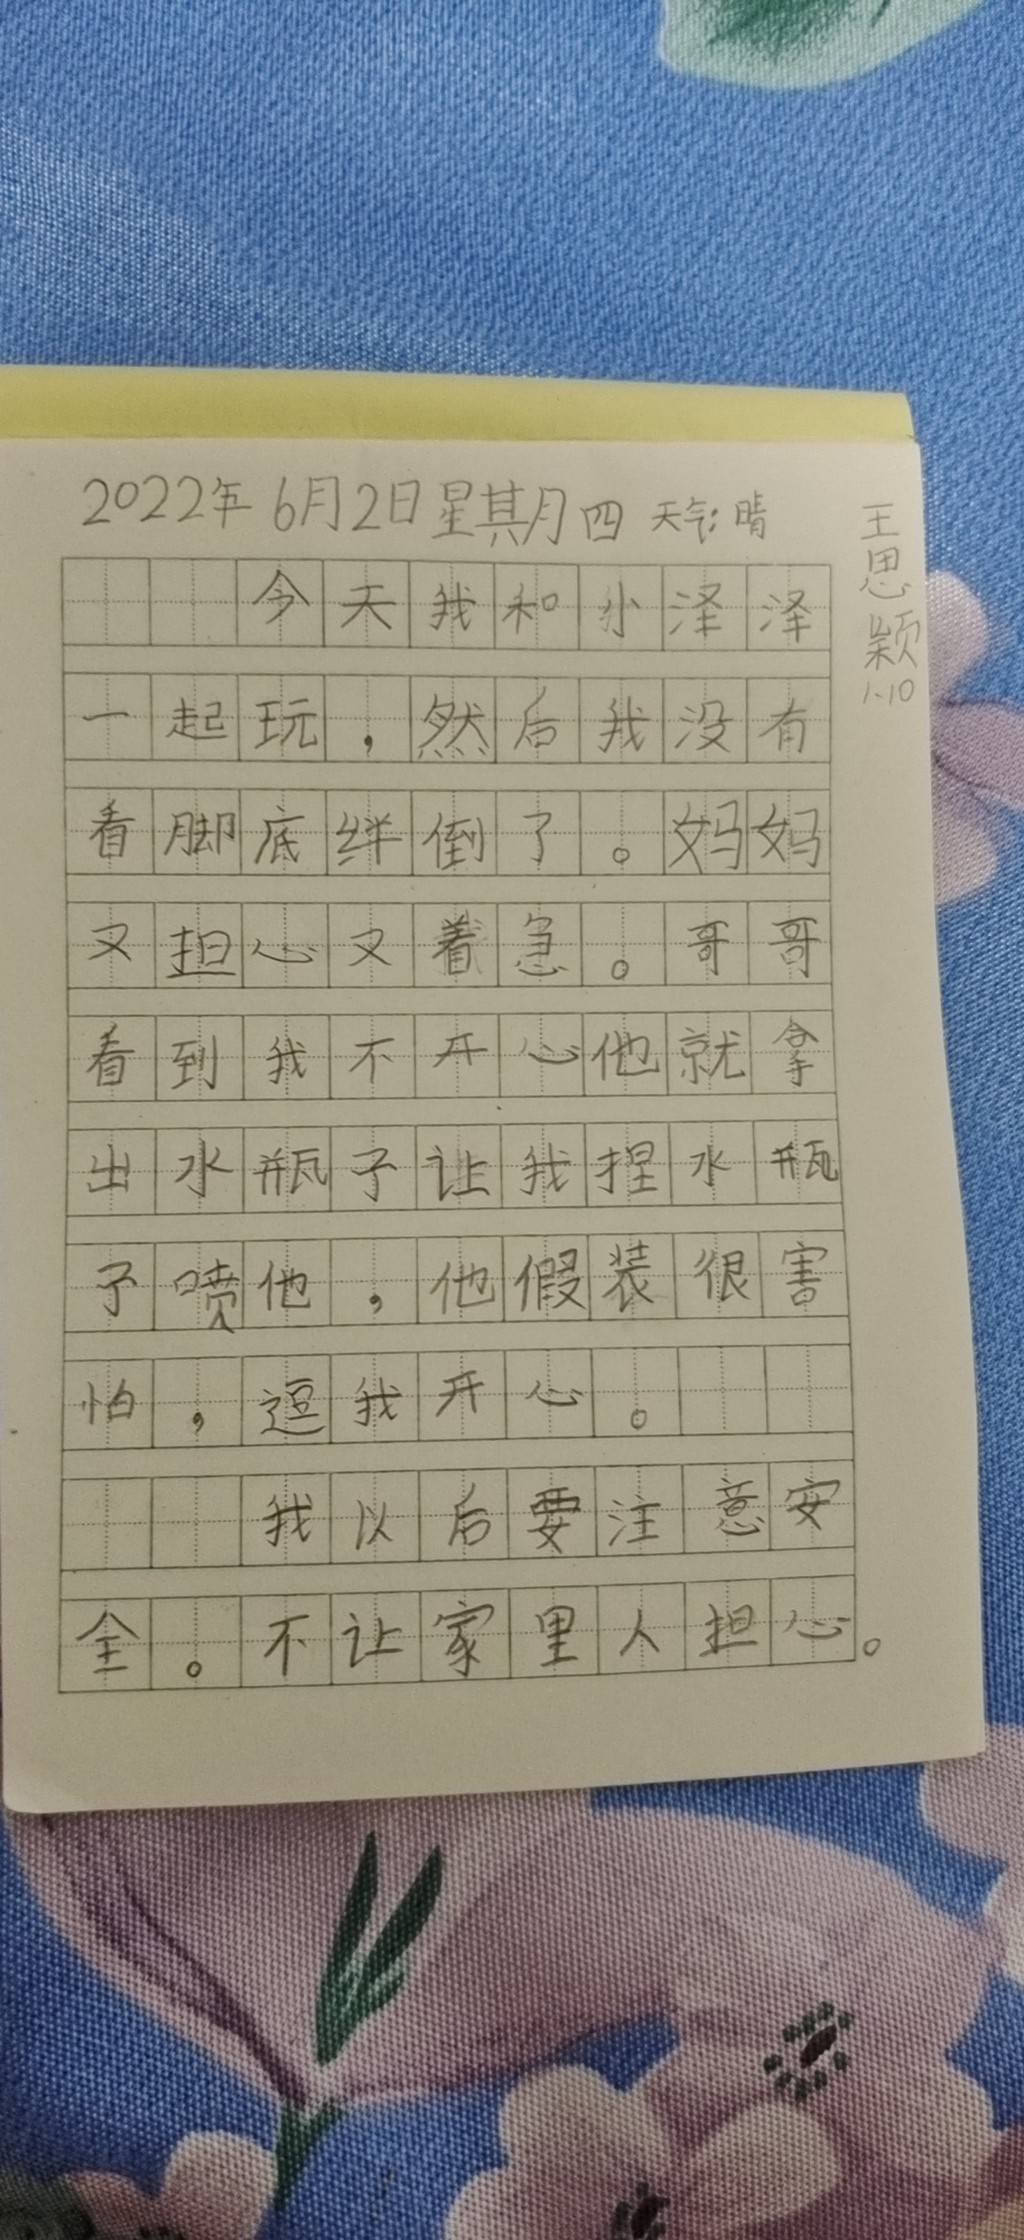 2022年 6月2日 星其月 四 天气:晴
王思颖
1.10
今天我和小泽泽
一起玩，然后我没有
看脚底绊倒了。妈妈
又担心又着急。哥哥
看到我不开心他就拿
出水瓶子让我捏水瓶
子喷他，他假装很害
怕，逗我开心。
我以后要注意安
全。不让家里人担心。